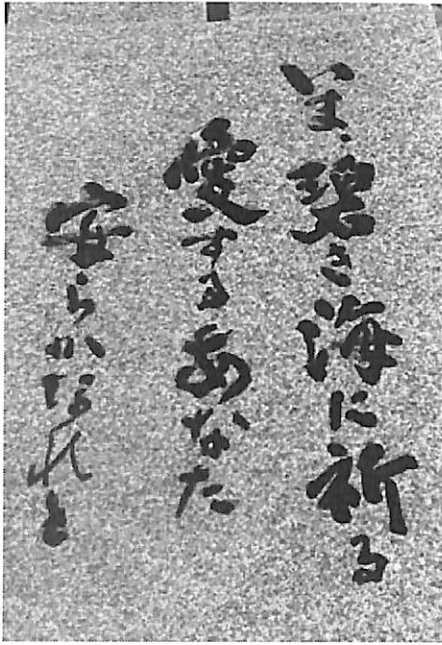 いま、碧き海に祈る
愛するあなた
安らかなれと